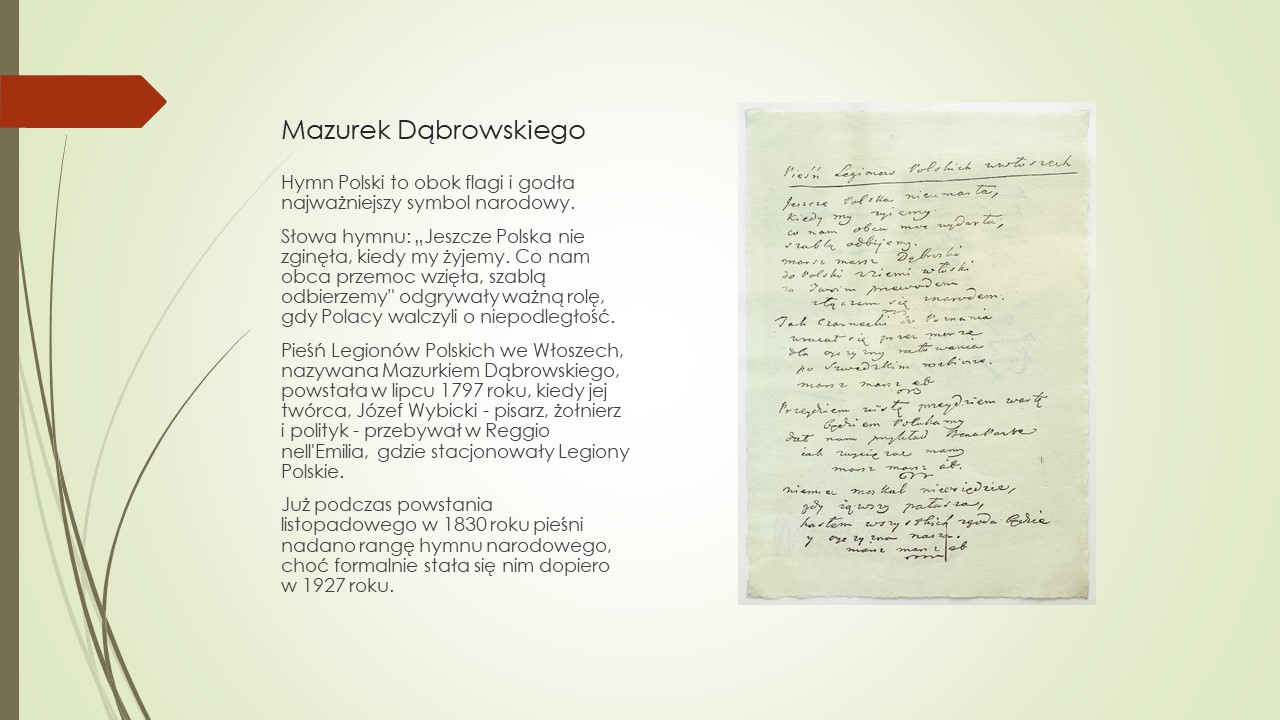 Mazurek Dąbrowskiego
Hymn Polski to obok flagi i godła
najważniejszy symbol narodowy.
Słowa hymnu: „Jeszcze Polska nie
zginęła, kiedy my żyjemy. Co nam
obca przemoc wzięła, szablą
odbierzemy" odgrywały ważną rolę,
gdy Polacy walczyli o niepodległość.
Pieśń Legionów Polskich we Włoszech,
nazywana Mazurkiem Dąbrowskiego,
powstała w lipcu 1797 roku, kiedy jej
twórca, Józef Wybicki - pisarz, żołnierz
i polityk - przebywał w Reggio
nell'Emilia, gdzie stacjonowały Legiony
Polskie.
Już podczas powstania
listopadowego w 1830 roku pieśni
nadano rangę hymnu narodowego,
choć formalnie stała się nim dopiero
w 1927 roku.
Pieśń Legionow Polskich
Jeszcze Polska nieumarła,
kiedy my żyiemy.
co nam obca moc wydarła,
szablą odbijemy.
marsz marsz Dąbroski
do Polski włoski
za Twoim przewodem
złączem się znarodem.
Jak Czarnecki do Poznania
wracał się przez morze
dla oyczyzny ratowania
po Szwedzkim rozbiorze.
marsz marsz
Przeydziem wisłę przeydziem wartę
będziem Polakamy
dał nam przykład Bonaparte
iak zwyciężać mamy
marsz marsz
niemiec moskal nieosiędzie,
gdy iąwszy pałasza,
hasłem wszystkich zgoda będzie
y oyczyzna nasza.
marsz marsz